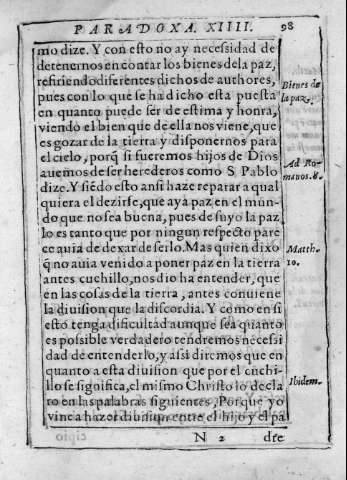 PARADOXA. XIIII. 98
mo dize. Y con esto no ay necessidad de
detenernos en contar los bienes dela paz,
refiriendo diferentes dichos de authores,
pues con lo que se ha dicho esta puesta
en quanto puede ser de estima y honra,
viendo el bien que de ella nos viene, que
es gozar de la tierra y disponernos para
el cielo, porq̃ si fueremos hijos de Dios
auemos de ser herederos como S. Pablo
dize. Y siẽdo esto ansi haze reparar a qual
quiera el dezirse, que aya paz en el mun-
do que no sea buena, pues de suyo la paz
lo es tanto que por ningun respecto pare
ce auia de dexar de serlo. Mas quien dixo
q̃ no auia venido a poner paz en la tierra
antes cuchillo, nos dio ha entender, que
en las cosas de la tierra, antes conuiene
la diuision que la discordia. Y como en si
esto tenga dificultad aunque sea quanto
es possible verdadero tendremos necessi
dad de entenderlo, y assi diremos que en
quanto a esta diuision que por el cuchi-
llo se significa, el mismo Christo lo decla
ro en las palabras siguientes, Porque yo
vine a hazer diuision entre el hijo y el pa
N 2 dre
Bienes de
la paz.
Ad Ro-
manos. 8.
Matth.
10.
Ibidem.